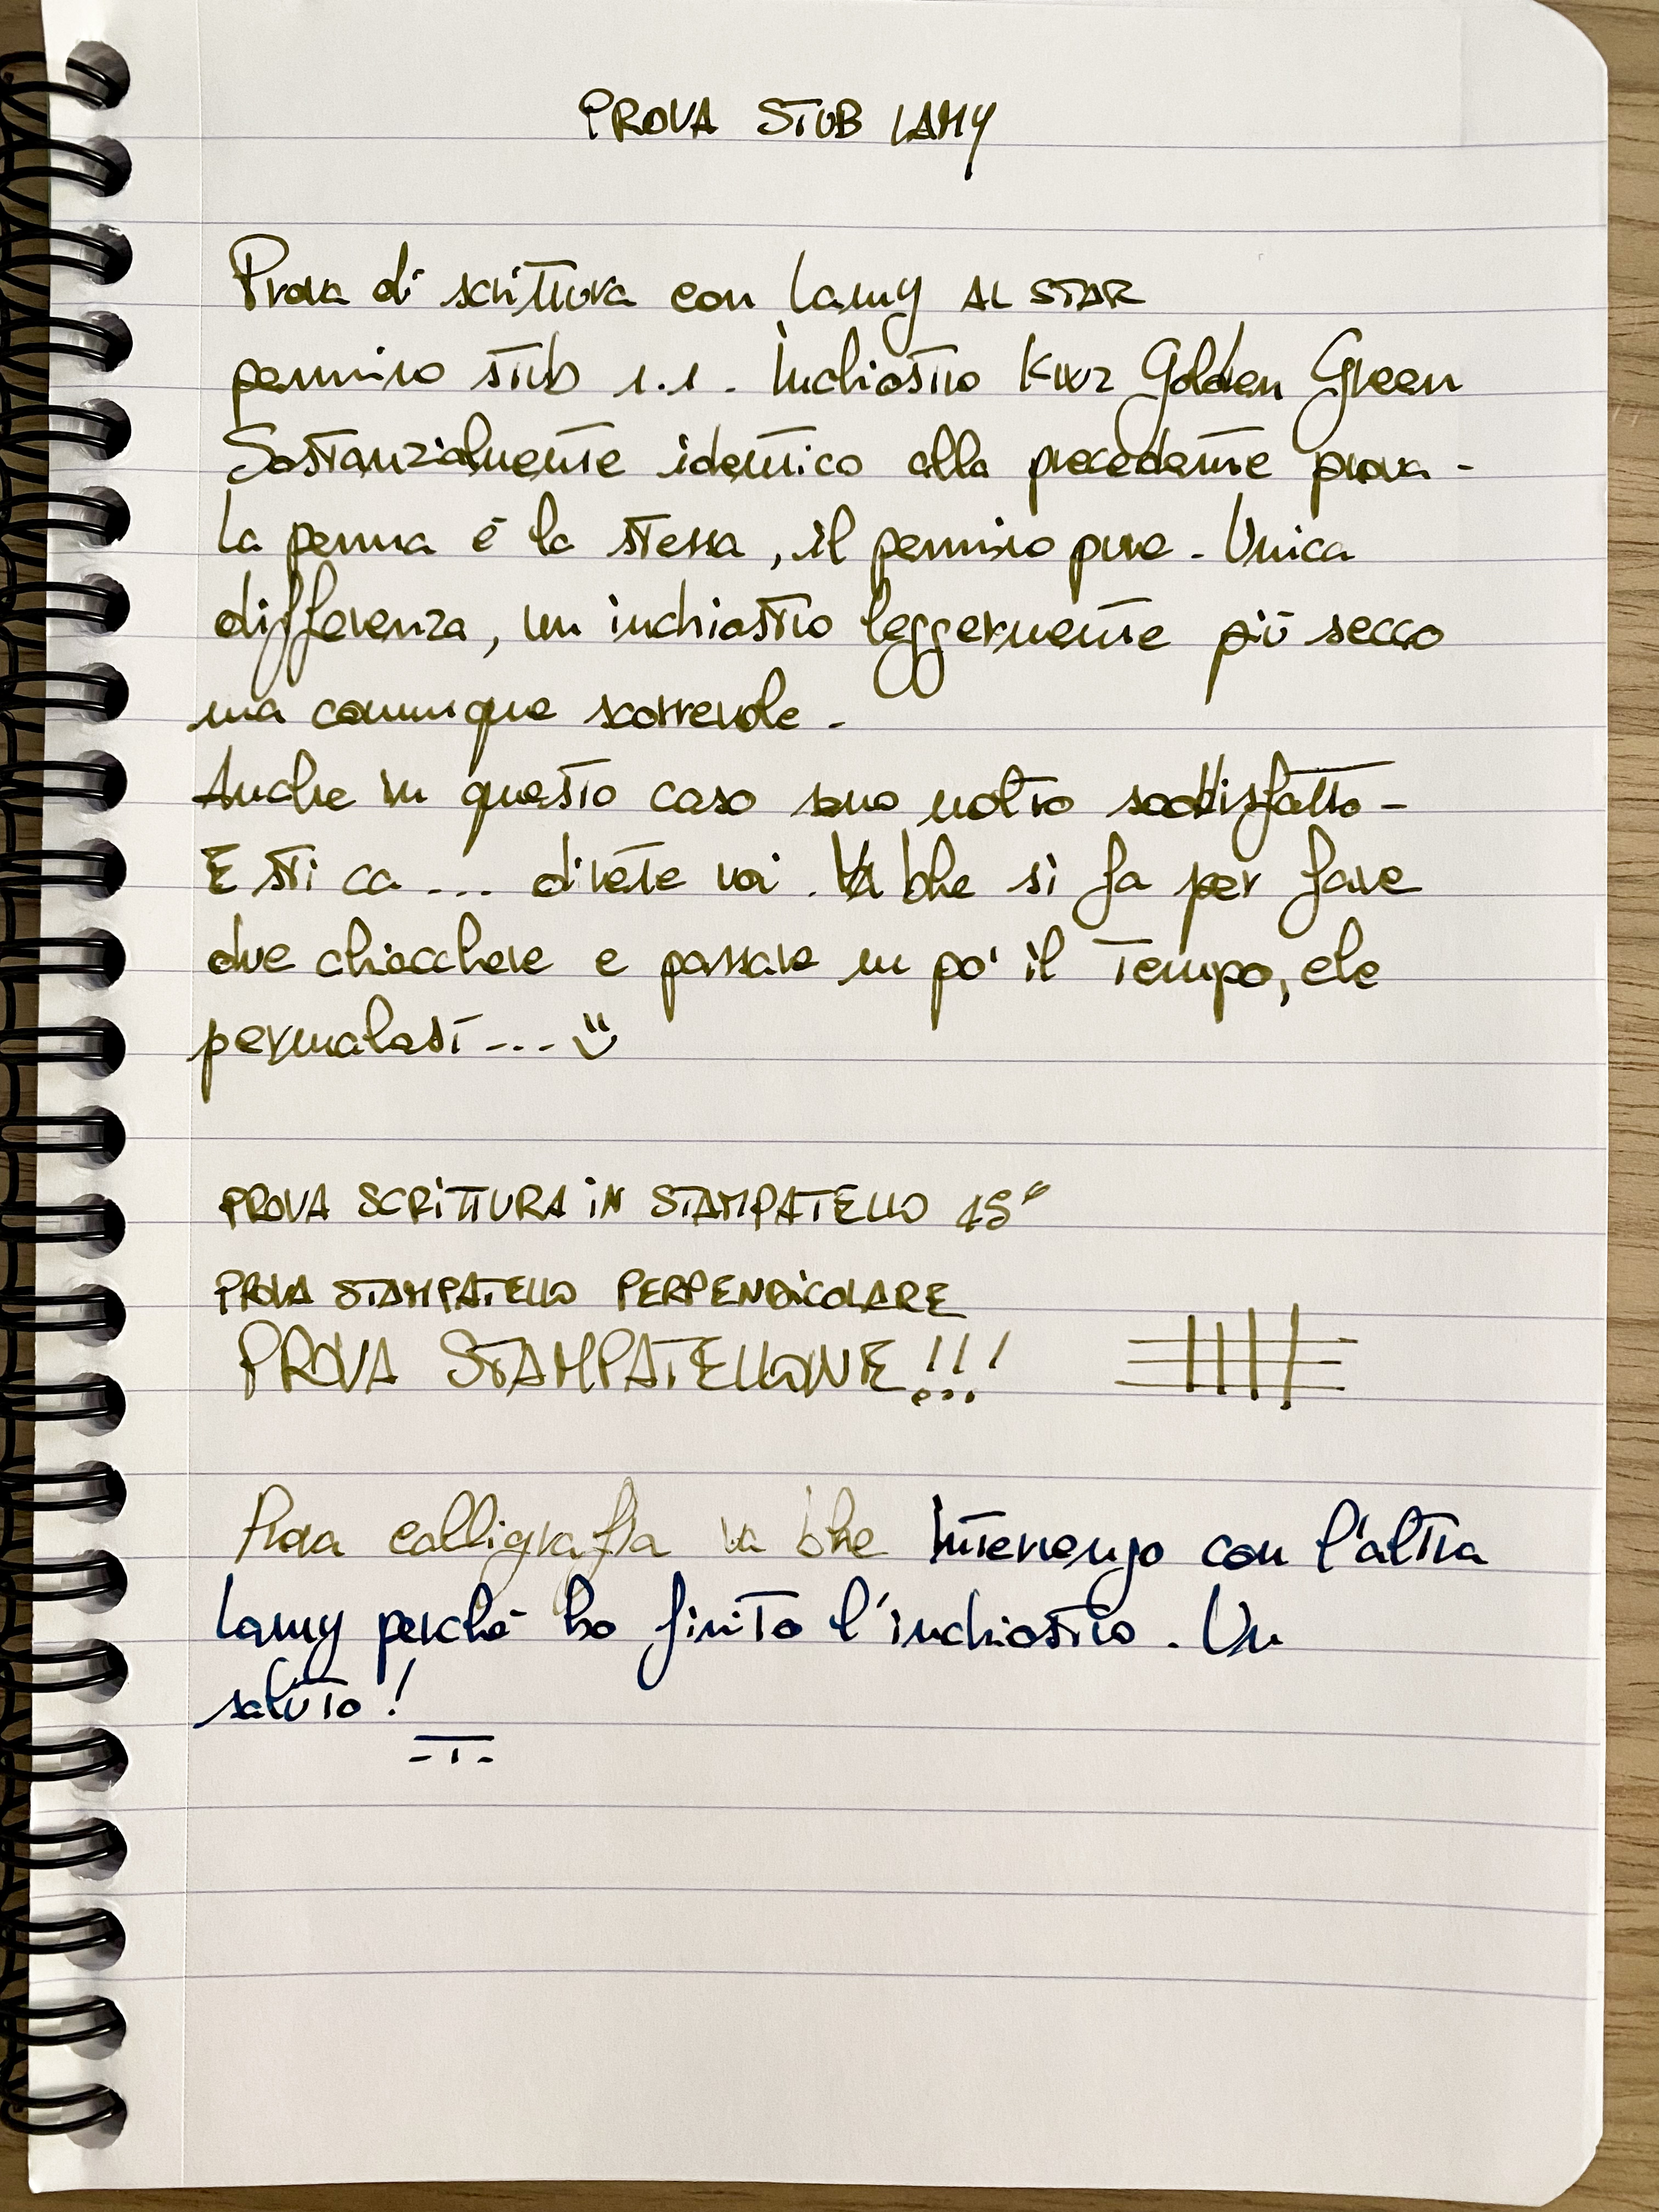 PROVA STUB LAMY
Prova di scrittura con Lamy AL STAR
pennino stub 1.1. Inchiostro KWZ Golden Green
Sostanzialmente identico alla precedente prova.
La penna è la stessa, il pennino pure. Unica
differenza, un inchiostro leggermente più secco
ma comunque scorrevole.
Anche in questo caso sono molto soddisfatto.
E sti ca... direte voi. Va bhe si fa per fare
due chiacchere e passare un po' il tempo, ele
permalast... 
PROVA SCRITTURA IN STAMPATELLO 45°
PROVA STAMPATELLO PERPENDICOLARE
PROVA STAMPATELLONE!!!
Prova calligrafia va bhe Intervengo con l'altra
Lamy perché ho finito l'inchiostro. Un
saluto!